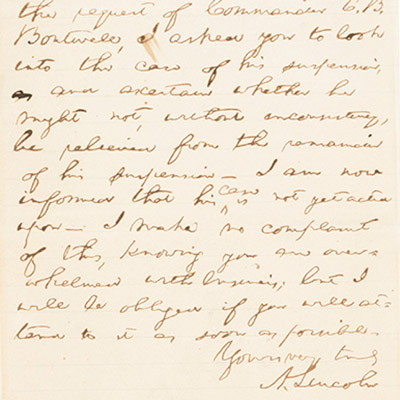 the request of Commander E. B.
Boutwell, I asked you to look
into the case of his suspension,
and ascertain whether he
might not, without inconsistency,
be relieved from the remainder
of his suspension — I am now
informed that his case is not yet acted
upon — I make no complaint
of this, knowing you are over-
whelmed with business; but I
will be obliged if you will at-
tend to it as soon as possible.
Yours very truly
A. Lincoln